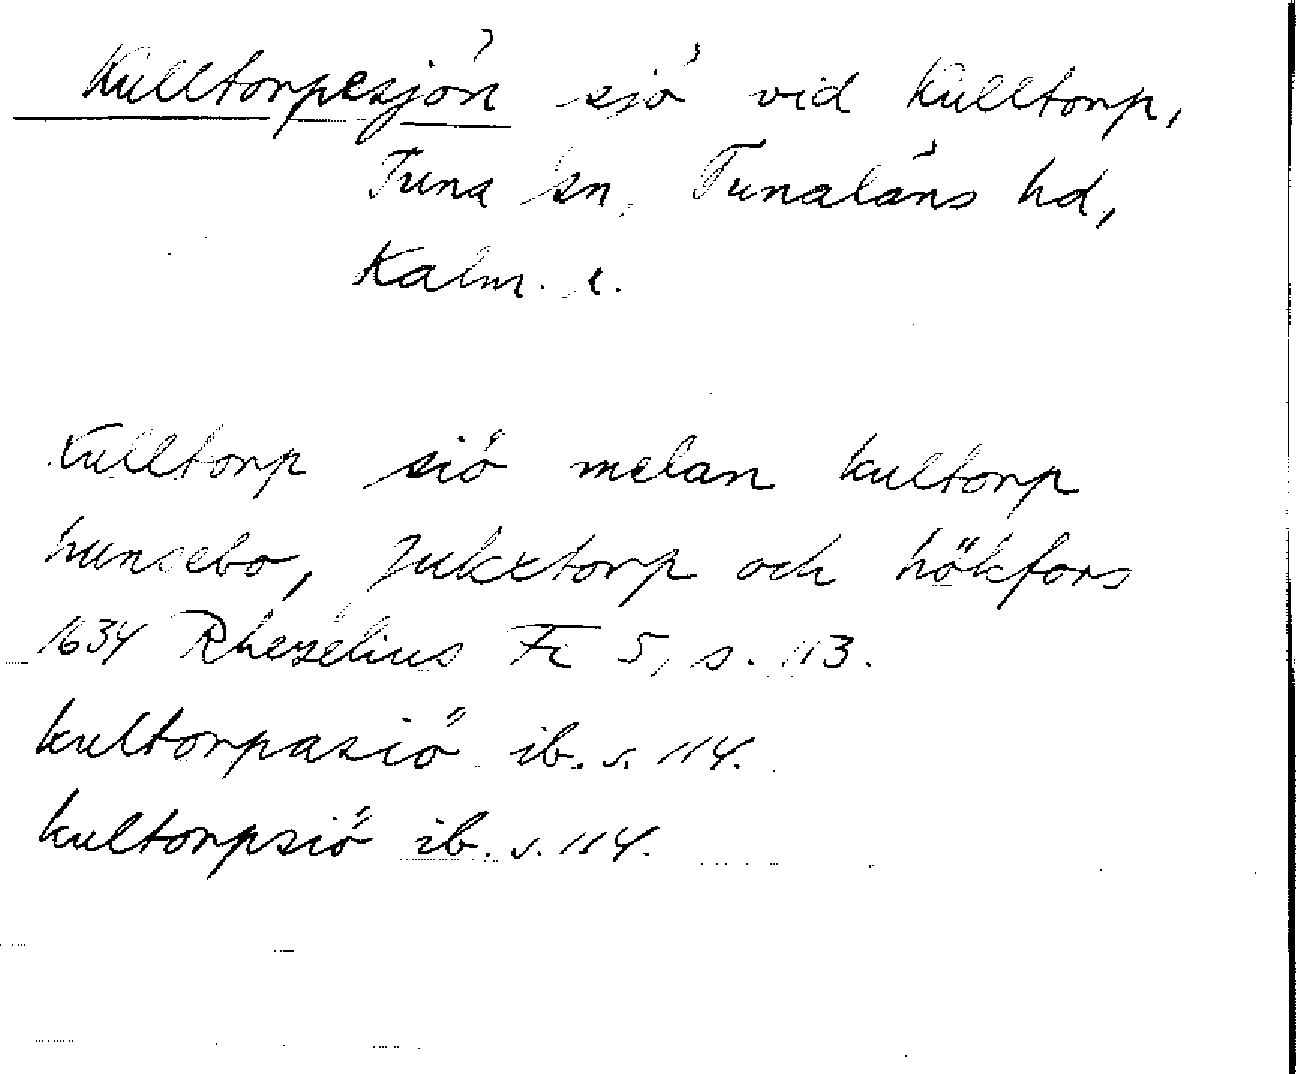 Kulltorpesjön sjö vid Kulltorp,
Tuna sn, Tunaläns hd,
Kalm. l.
Kulltorp siö melan kultorp
hunsebo, Jukxtorp och hökfors
1634 Rhezelius Fc 5, s. 113.
kultorpasiö ib. s. 114.
kultorpsiö ib. s. 114.